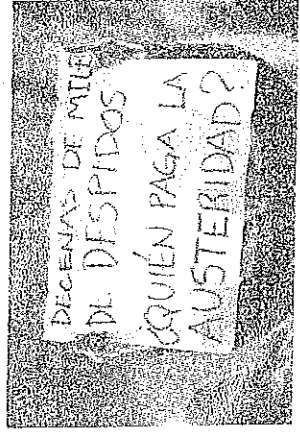 DECENAS DE MILE
DE DESPIDOS
¿QUIÉN PAGA LA
AUSTERIDAD?